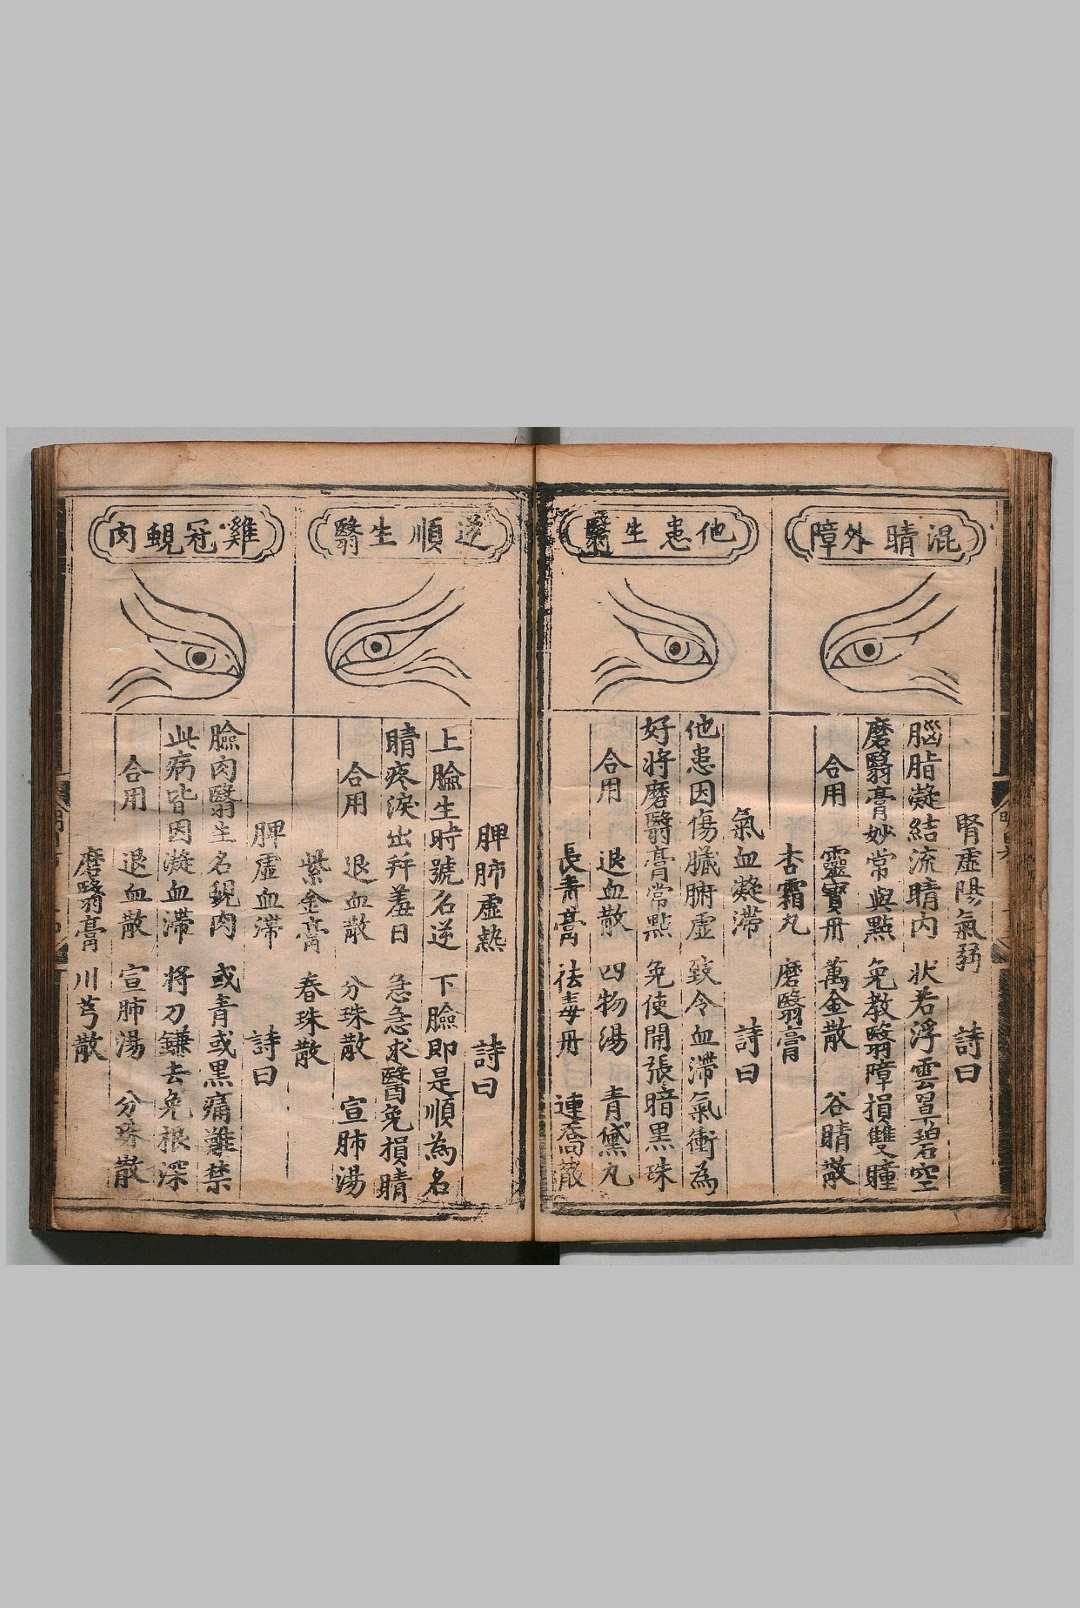 混睛外障
腎虛陽氣弱 詩曰
腦脂凝結流睛内 狀若浮雲罩碧空
磨翳膏妙常與點 免教翳障損雙瞳
合用 靈寶丹 萬金散 谷睛散
杏霜丸 磨翳膏
他患生翳
氣血凝滯 詩曰
他患因傷臟腑虛 致令血滯氣衝為
好將磨翳膏常點 免使開張暗黑珠
合用 退血散 四物湯 青黛丸
長青膏 祛毒丹 連喬散
逆順生翳
脾肺虛熱 詩曰
上臉生時號名逆 下臉即是順為名
睛疼淚出弁羞日 急急求醫免損睛
合用 退血散 分珠散 宣肺湯
紫金膏 春珠散
雞冠蜆肉
脾虛血滯 詩曰
臉肉翳生名蜆肉 或青或黑痛難禁
此病皆因凝血滯 將刀鐮去免根深
合用 退血散 宣肺湯 分珠散
磨翳膏 川芎散